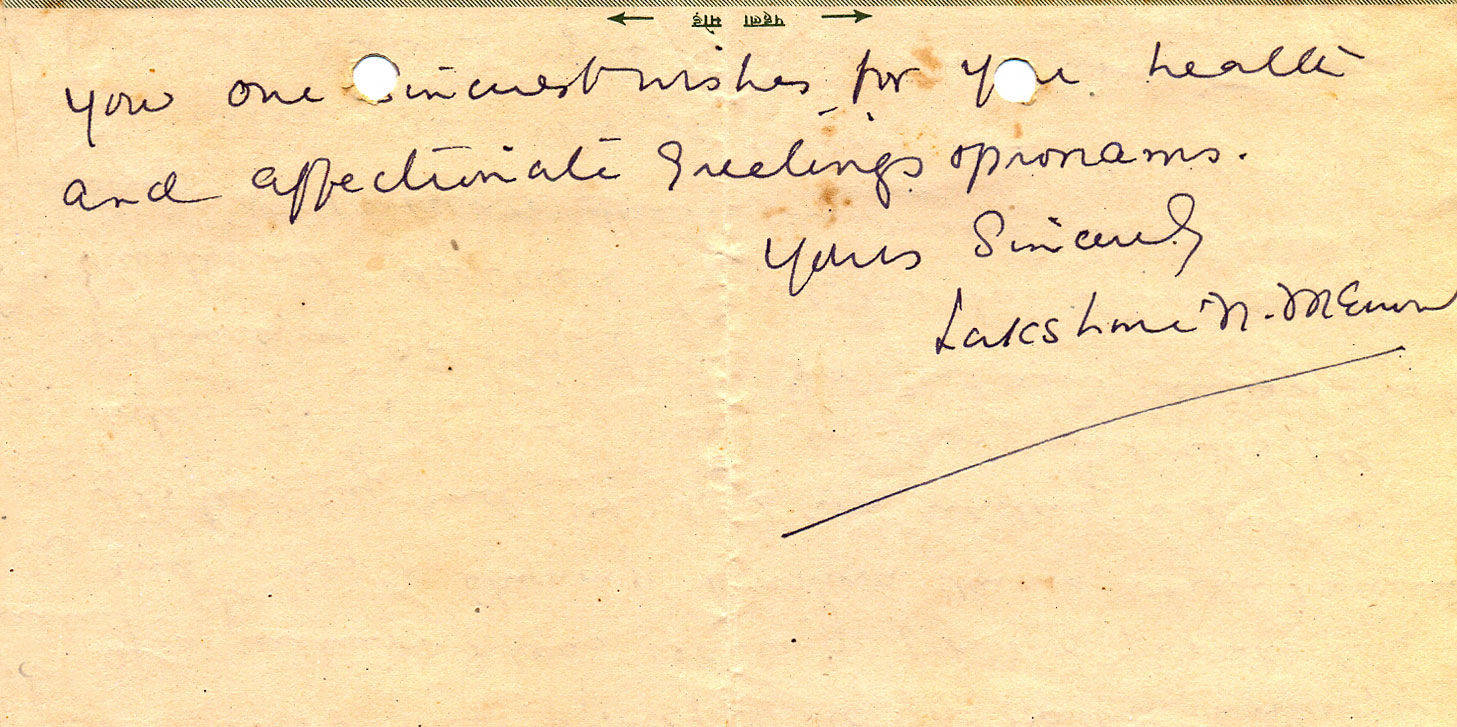 ← पहला मोड़ →
your one sincerest wishes for your health
and affectionate greetings & pronams.
Yours Sincerely
Lakshmi N. Menon